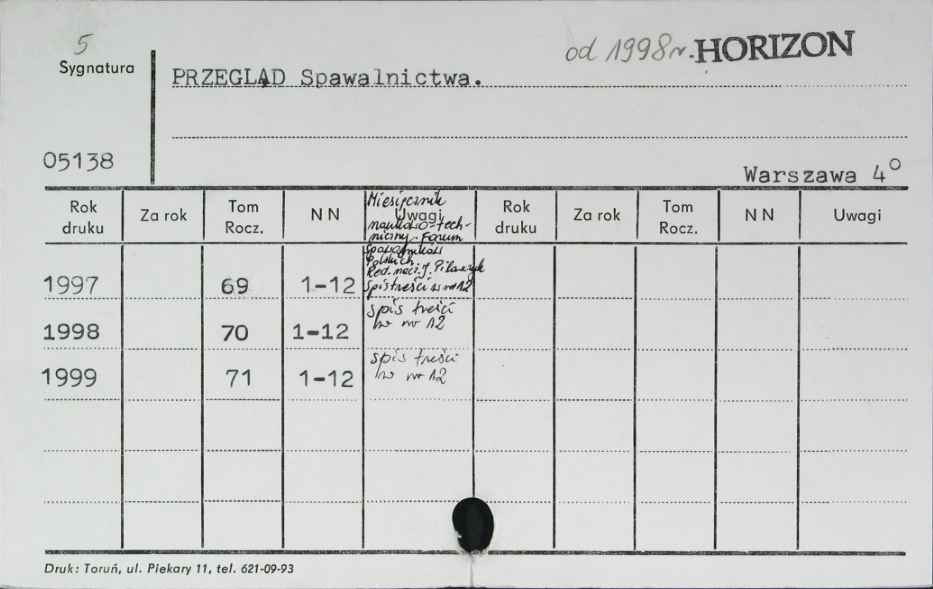 5
od 1998 r. HORIZON
Sygnatura
PRZEGLĄD Spawalnictwa.
05138
Warszawa 4°
Rok druku Za rok Tom Rocz. NN Uwagi Rok druku Za rok Tom Rocz. NN Uwagi
Miesięcznik
naukowo-tech-
niczny. Forum
Spawalników
Polskich
Red. nacz. J. Pilarczyk
1997 69 1-12 Spis treści w nr 12
1998 70 1-12 spis treści
w nr 12
1999 71 1-12 spis treści
w nr 12
Druk: Toruń, ul. Piekary 11, tel. 621-09-93